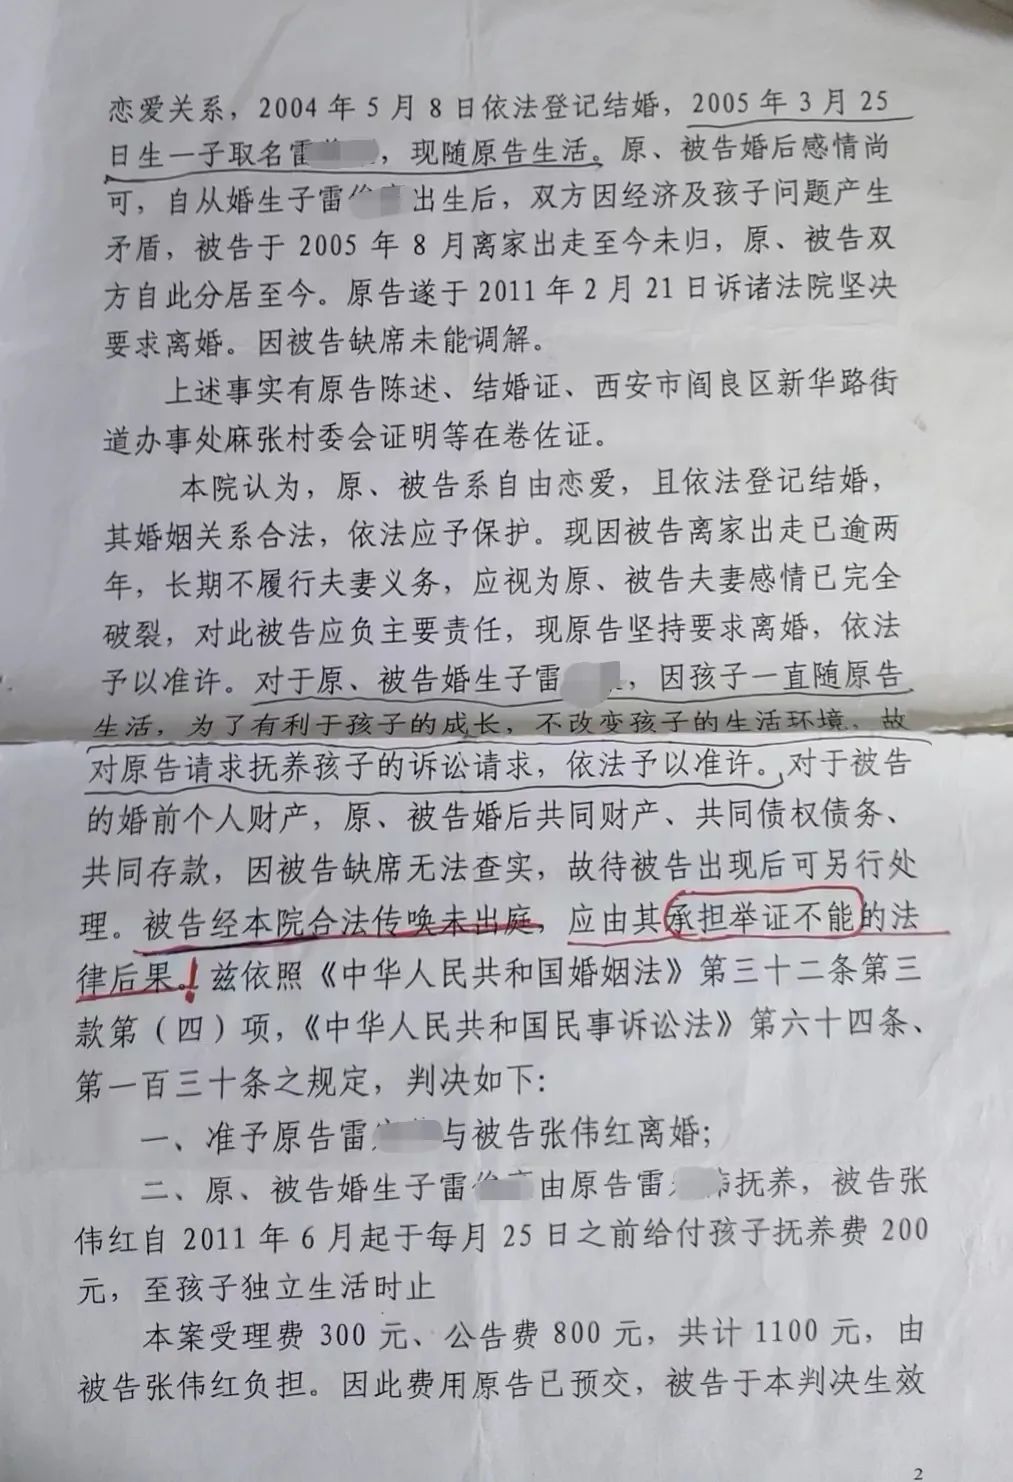 恋爱关系，2004 年 5 月 8 日依法登记结婚，2005 年 3 月 25
日生一子取名雷，现随原告生活。原、被告婚后感情尚
可，自从婚生子雷出生后，双方因经济及孩子问题产生
矛盾，被告于 2005 年 8 月离家出走至今未归，原、被告双
方自此分居至今。原告遂于 2011 年 2 月 21 日诉诸法院坚决
要求离婚。因被告缺席未能调解。
上述事实有原告陈述、结婚证、西安市阎良区新华路街
道办事处麻张村委会证明等在卷佐证。
本院认为，原、被告系自由恋爱，且依法登记结婚，
其婚姻关系合法，依法应予保护。现因被告离家出走已逾两
年，长期不履行夫妻义务，应视为原、被告夫妻感情已完全
破裂，对此被告应负主要责任，现原告坚持要求离婚，依法
予以准许。对于原、被告婚生子雷，因孩子一直随原告
生活，为了有利于孩子的成长，不改变孩子的生活环境，故
对原告请求抚养孩子的诉讼请求，依法予以准许。对于被告
的婚前个人财产，原、被告婚后共同财产、共同债权债务、
共同存款，因被告缺席无法查实，故待被告出现后可另行处
理。被告经本院合法传唤未出庭，应由其承担举证不能的法
律后果。！兹依照《中华人民共和国婚姻法》第三十二条第三
款第（四）项，《中华人民共和国民事诉讼法》第六十四条、
第一百三十条之规定，判决如下：
一、准予原告雷与被告张伟红离婚；
二、原、被告婚生子雷由原告雷抚养，被告张
伟红自 2011 年 6 月起于每月 25 日之前给付孩子抚养费 200
元，至孩子独立生活时止
本案受理费 300 元、公告费 800 元，共计 1100 元，由
被告张伟红负担。因此费用原告已预交，被告于本判决生效
2